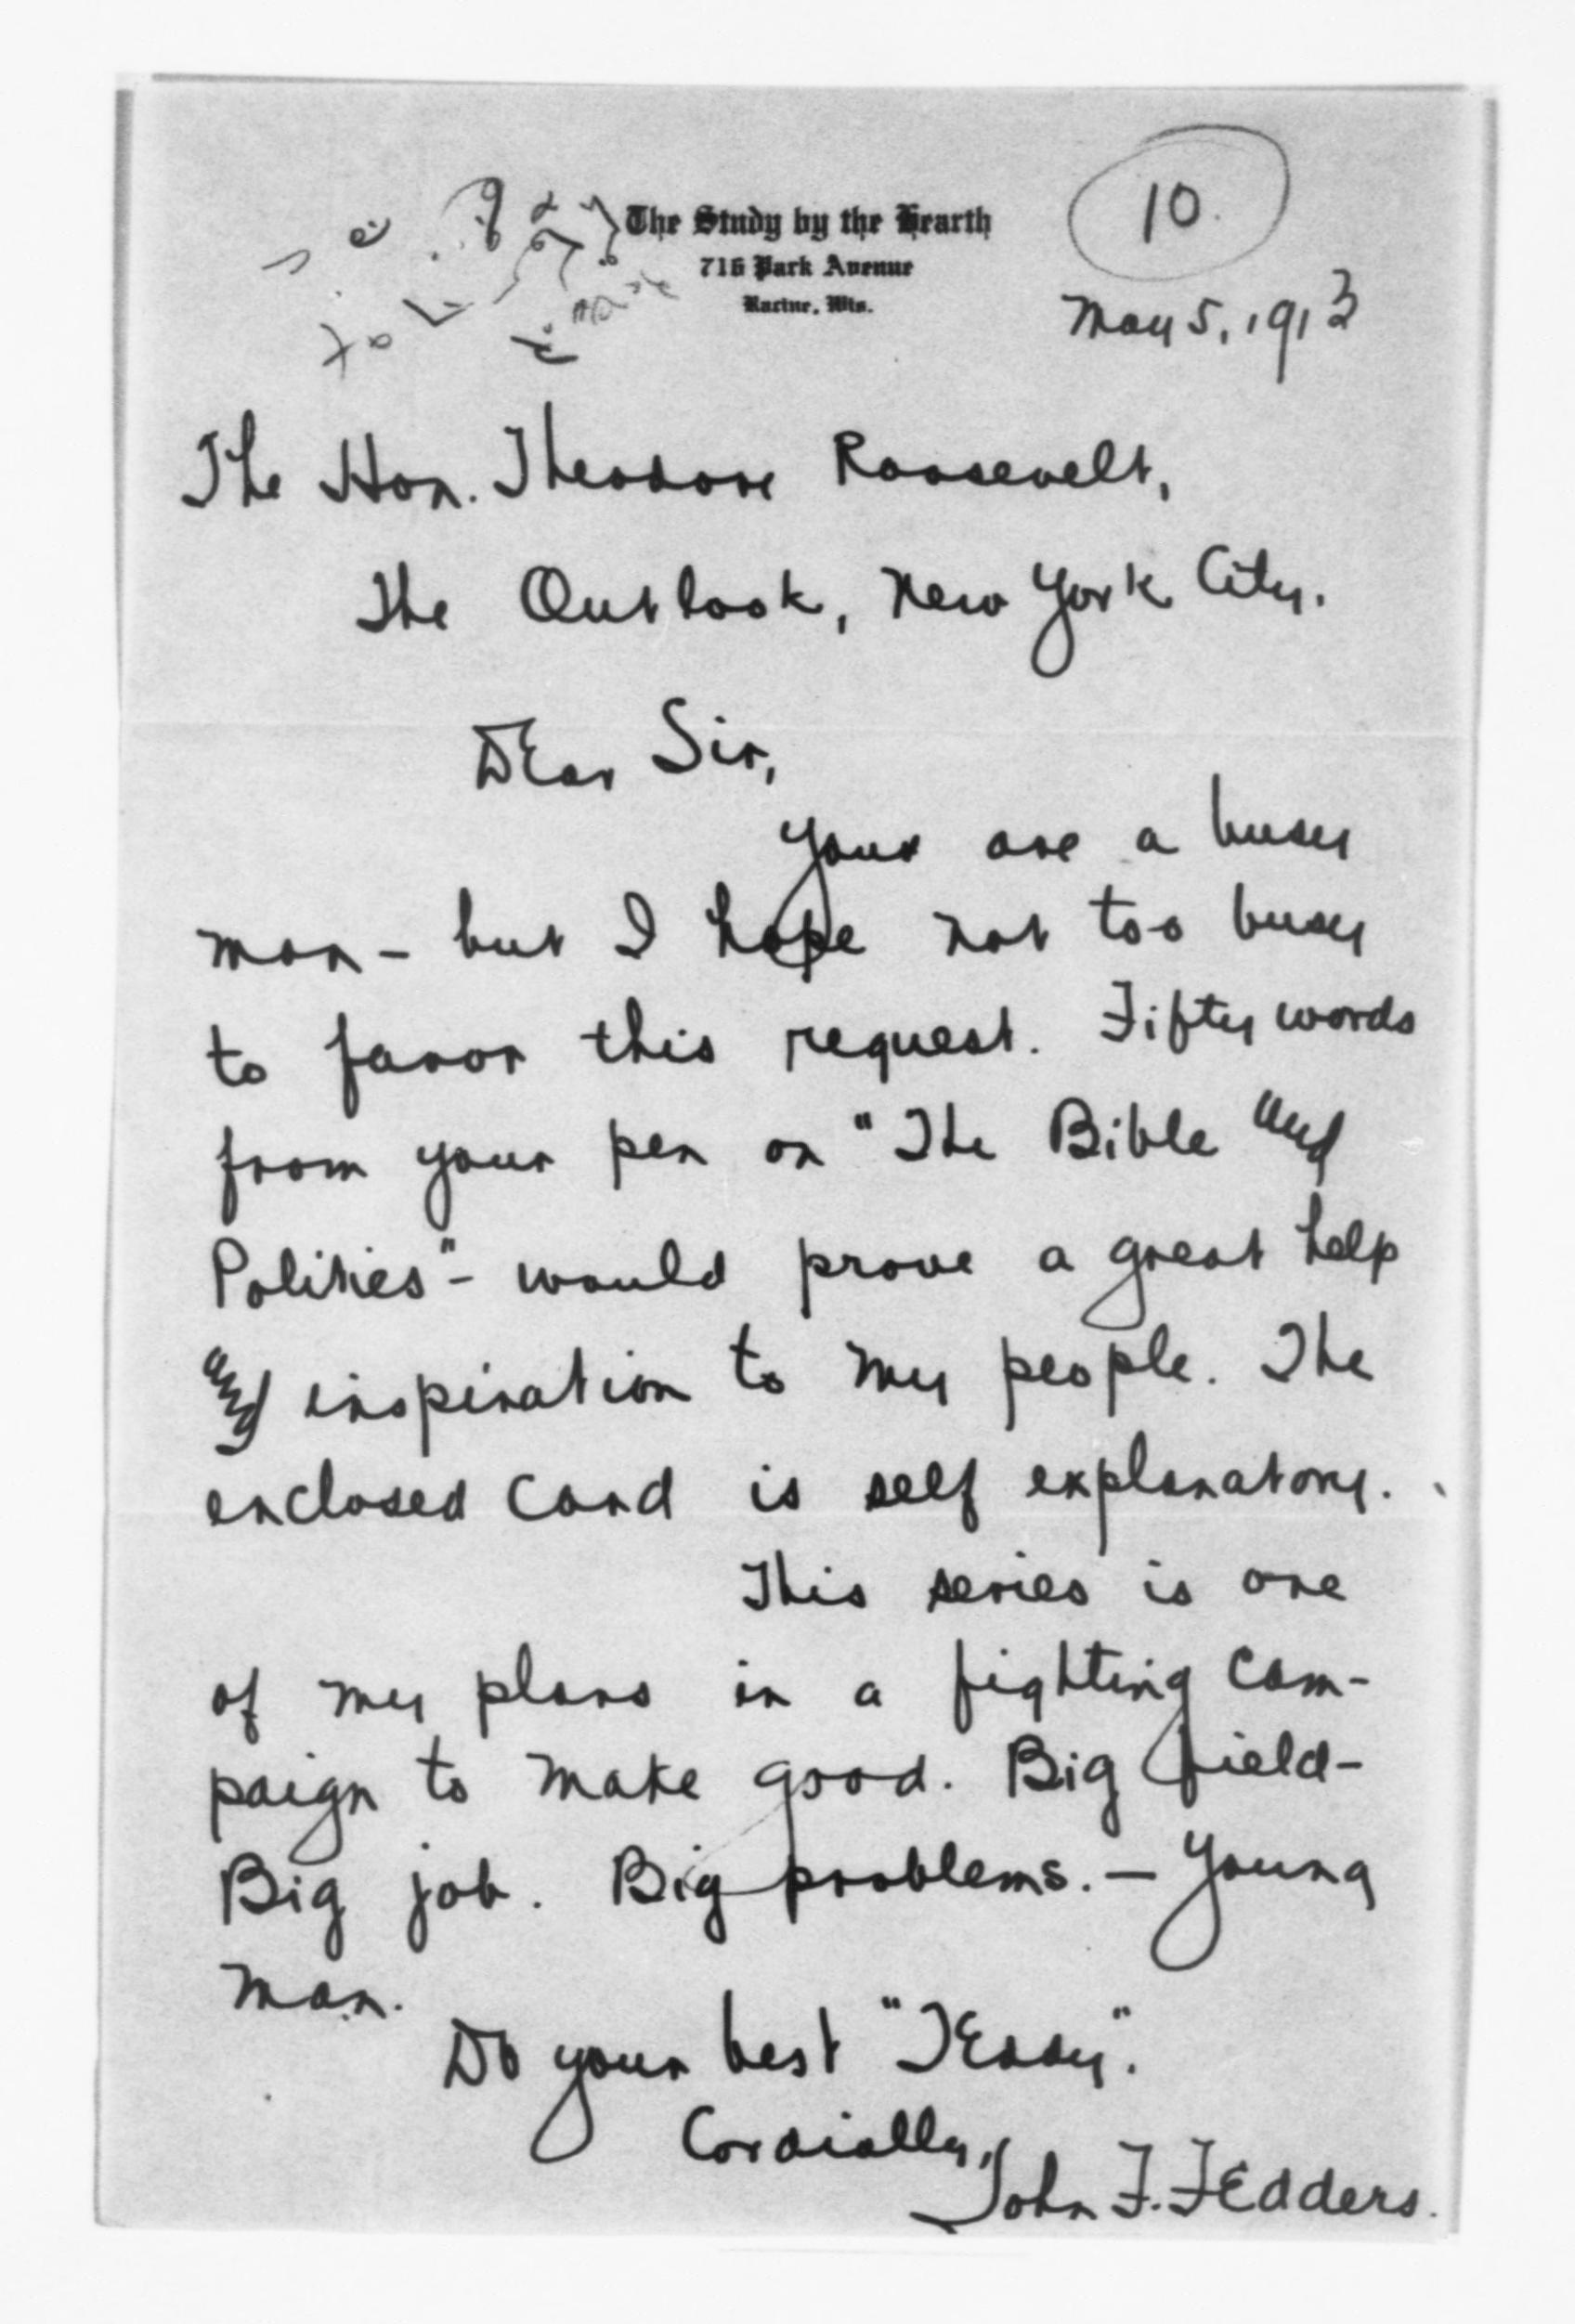 The Study by the Hearth
10.
716 Park Avenue
Racine, Wis.
May 5, 1913
The Hon. Theodore Roosevelt,
The Outlook, New York City.
Dear Sir,
Your are a busy
man - but I hope not too busy
to favor this request. Fifty words
from your pen on "The Bible and
Politics" - would prove a great help
and inspiration to my people. The
enclosed card is self explanatory.
This series is one
of my plans in a fighting cam-
paign to make good. Big field-
Big job. Big problems. - Young
man.
Do your best "Teddy".
Cordially,
John F. Fedders.